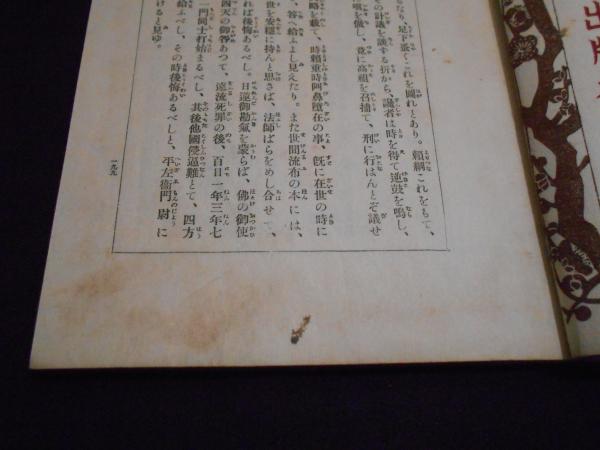 出版
なり、足下蚤くこれを圖れとあり。賴綱これをもて、
の計議を議する折から、讒者は時を得て逆鼓を鳴し、
唄を儺し、竟に高祖を召捕て、刑に行はんとぞ議せ
略を載て、時賴重時阿鼻墮在の事、旣に在世の時に
答へ給ふよし見えたり。また世間流布の本には、
世を安穩に持んと思さば、法師ばらをめし合せて、
れば後悔あるべし。日蓮御勘氣を蒙らば、佛の御使
四天の御咎あつて、遠流死罪の後、百日一年三年七
一門同士打始まるべし、其後他國侵逼難とて、四方
給ふべし、その時後悔あるべしと、平左衞門尉に
けると見ゆ。
一九九